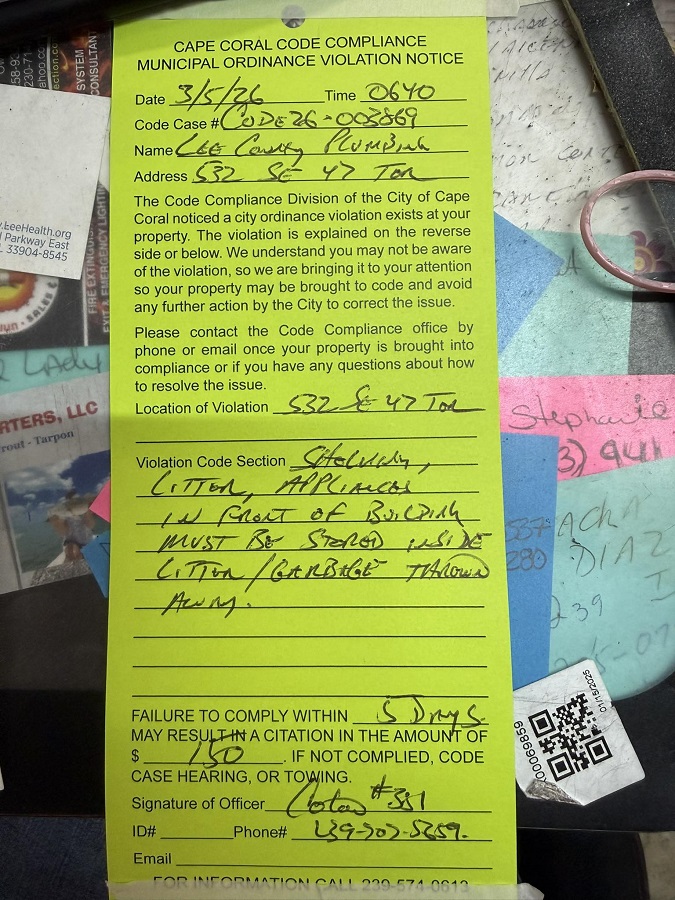 CAPE CORAL CODE COMPLIANCE
MUNICIPAL ORDINANCE VIOLATION NOTICE
Date 3/5/26 Time 0640
Code Case # CODE26-003869
Name LEE County Plumbing
Address 532 SE 47 Ter
The Code Compliance Division of the City of Cape
Coral noticed a city ordinance violation exists at your
property. The violation is explained on the reverse
side or below. We understand you may not be aware
of the violation, so we are bringing it to your attention
so your property may be brought to code and avoid
any further action by the City to correct the issue.
Please contact the Code Compliance office by
phone or email once your property is brought into
compliance or if you have any questions about how
to resolve the issue.
Location of Violation 532 SE 47 Ter
Violation Code Section
LITTER, APPLIANCES
IN FRONT OF BUILDING
MUST BE STORED INSIDE
LITTER/GARBAGE THROWN
AWAY.
FAILURE TO COMPLY WITHIN 5 DAYS
MAY RESULT IN A CITATION IN THE AMOUNT OF
$ 150. IF NOT COMPLIED, CODE
CASE HEARING, OR TOWING.
Signature of Officer #381
ID# Phone# 239-707-5359
Email
FOR INFORMATION CALL 239-574-0613
SYSTEM
CONSULTANT
.LeeHealth.org
Parkway East
33904-8545
FIRE EXTINGUI
EXIT & EMERGENCY LIGHTIN
LADY
RTERS, LLC
rout - Tarpon
Stephanie
3) 941
DIAZ
239
01/15/2025
00069859